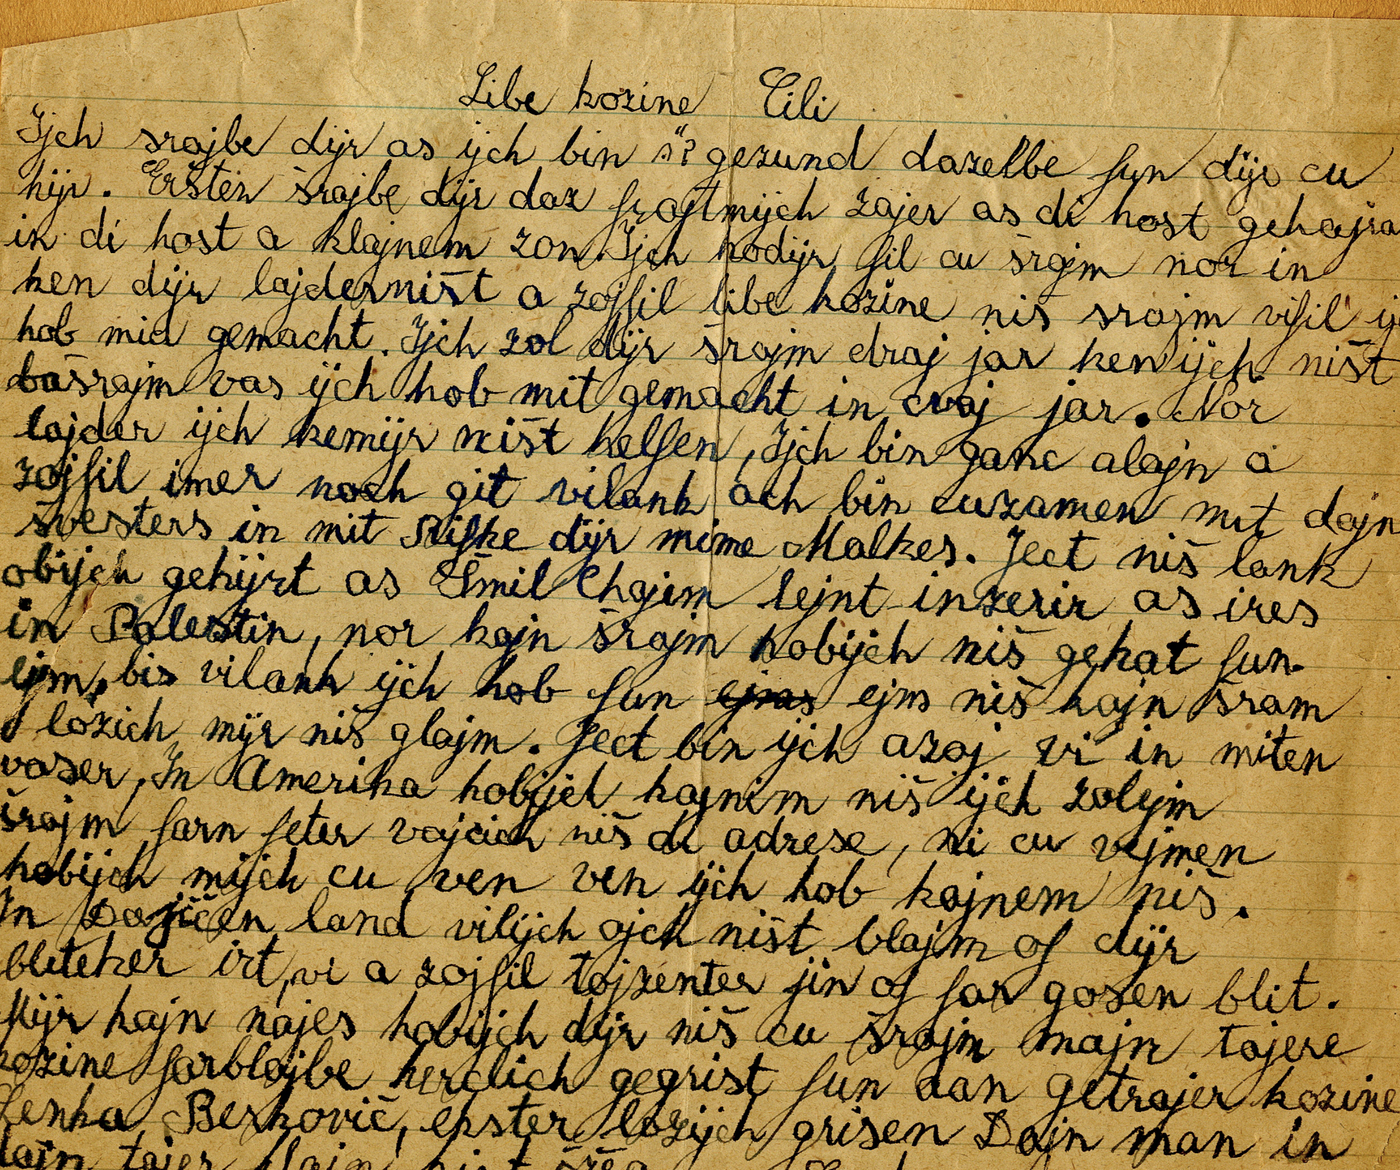 Libe kozine Cili
Ijch srajbe dyjr as ijch bin gezund dazelbe fun dijr cu
hijr. Ersten šrajbe dijr daz frajtmijch zajer as di host gehajra
in di host a klajnem zon Ijch hodijr fil cu šrajm nor in
ken dijr lajderništ a zojfil libe kozine niš srajm vifil ij
hob mid gemacht. Ijch zol dijr šrajm draj jar ken ijch ništ
bašrajm vas ijch hob mit gemacht in cvaj jar. Nor
lajder ijch kemijr ništ helfen, Ijch bin ganc alajn a
zojfil imer noch git vilank ach bin cuzamen mit dajn
švesters in mit Rifke dijr mime Malkes. Ject niš lank
obijch gehijrt as Šmil Chajim lejnt inzerir as ires
in Palestin, nor kajn šrajm hobijch niš gehat fun
ejm, bis vilank ijch hob fun ejm niš kajn šram
lozich mijr niš glajm. Ject bin ijch azoj vi in miten
vaser, In Amerika hobijch kajnem niš ijch zolejm
šrajm farn feter vajcich niš di adrese, ni cu vejmen
hobijch mijch cu ven ven ijch hob kajnem niš.
In Dajičen land vilijch ojch ništ blajm of dijr
bliteker irt, vi a zojfil tojzenter jin of far gosen blit.
Mijr kajn najes hobijch dijr niš cu šrajm majn tajere
kozine farblajbe herclich gegrist fun dan getrajer kozine
Lenka Berkovič, epster lozijch grisen Dajn man in
dajn tajer